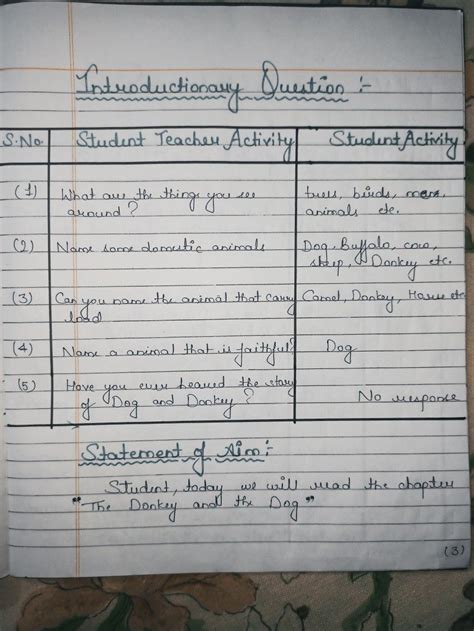 Introductionary Question :-
S.No. Student Teacher Activity Student Activity
(1) What are the things you see trees, birds, mens,
around ? animals etc.
(2) Name some domestic animals Dog, Buffalo, cow,
sheep, Donkey etc.
(3) Can you name the animal that carry Camel, Donkey, Horse etc
load
(4) Name a animal that is faithful? Dog
(5) Have you ever heared the story
of Dog and Donkey ? No response
Statement of Aim :-
Student, today we will read the chapter
"The Donkey and the Dog"
(3)